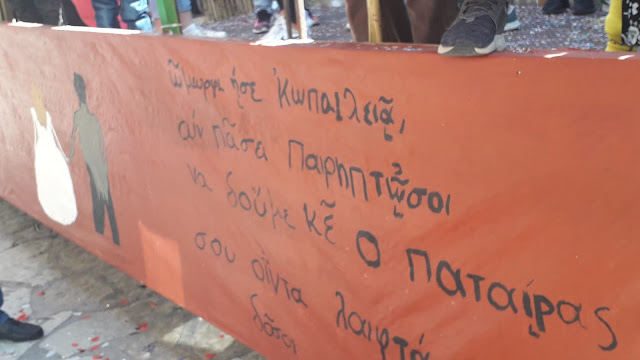 ὤμωρφι ἥσε Κωπαιλειᾷ,
αἰν πᾶσα Παιρηπτῶσοι
να δοῦμε κέ ο παταίρας
σου οἵντα λαιφτά
δόσοι